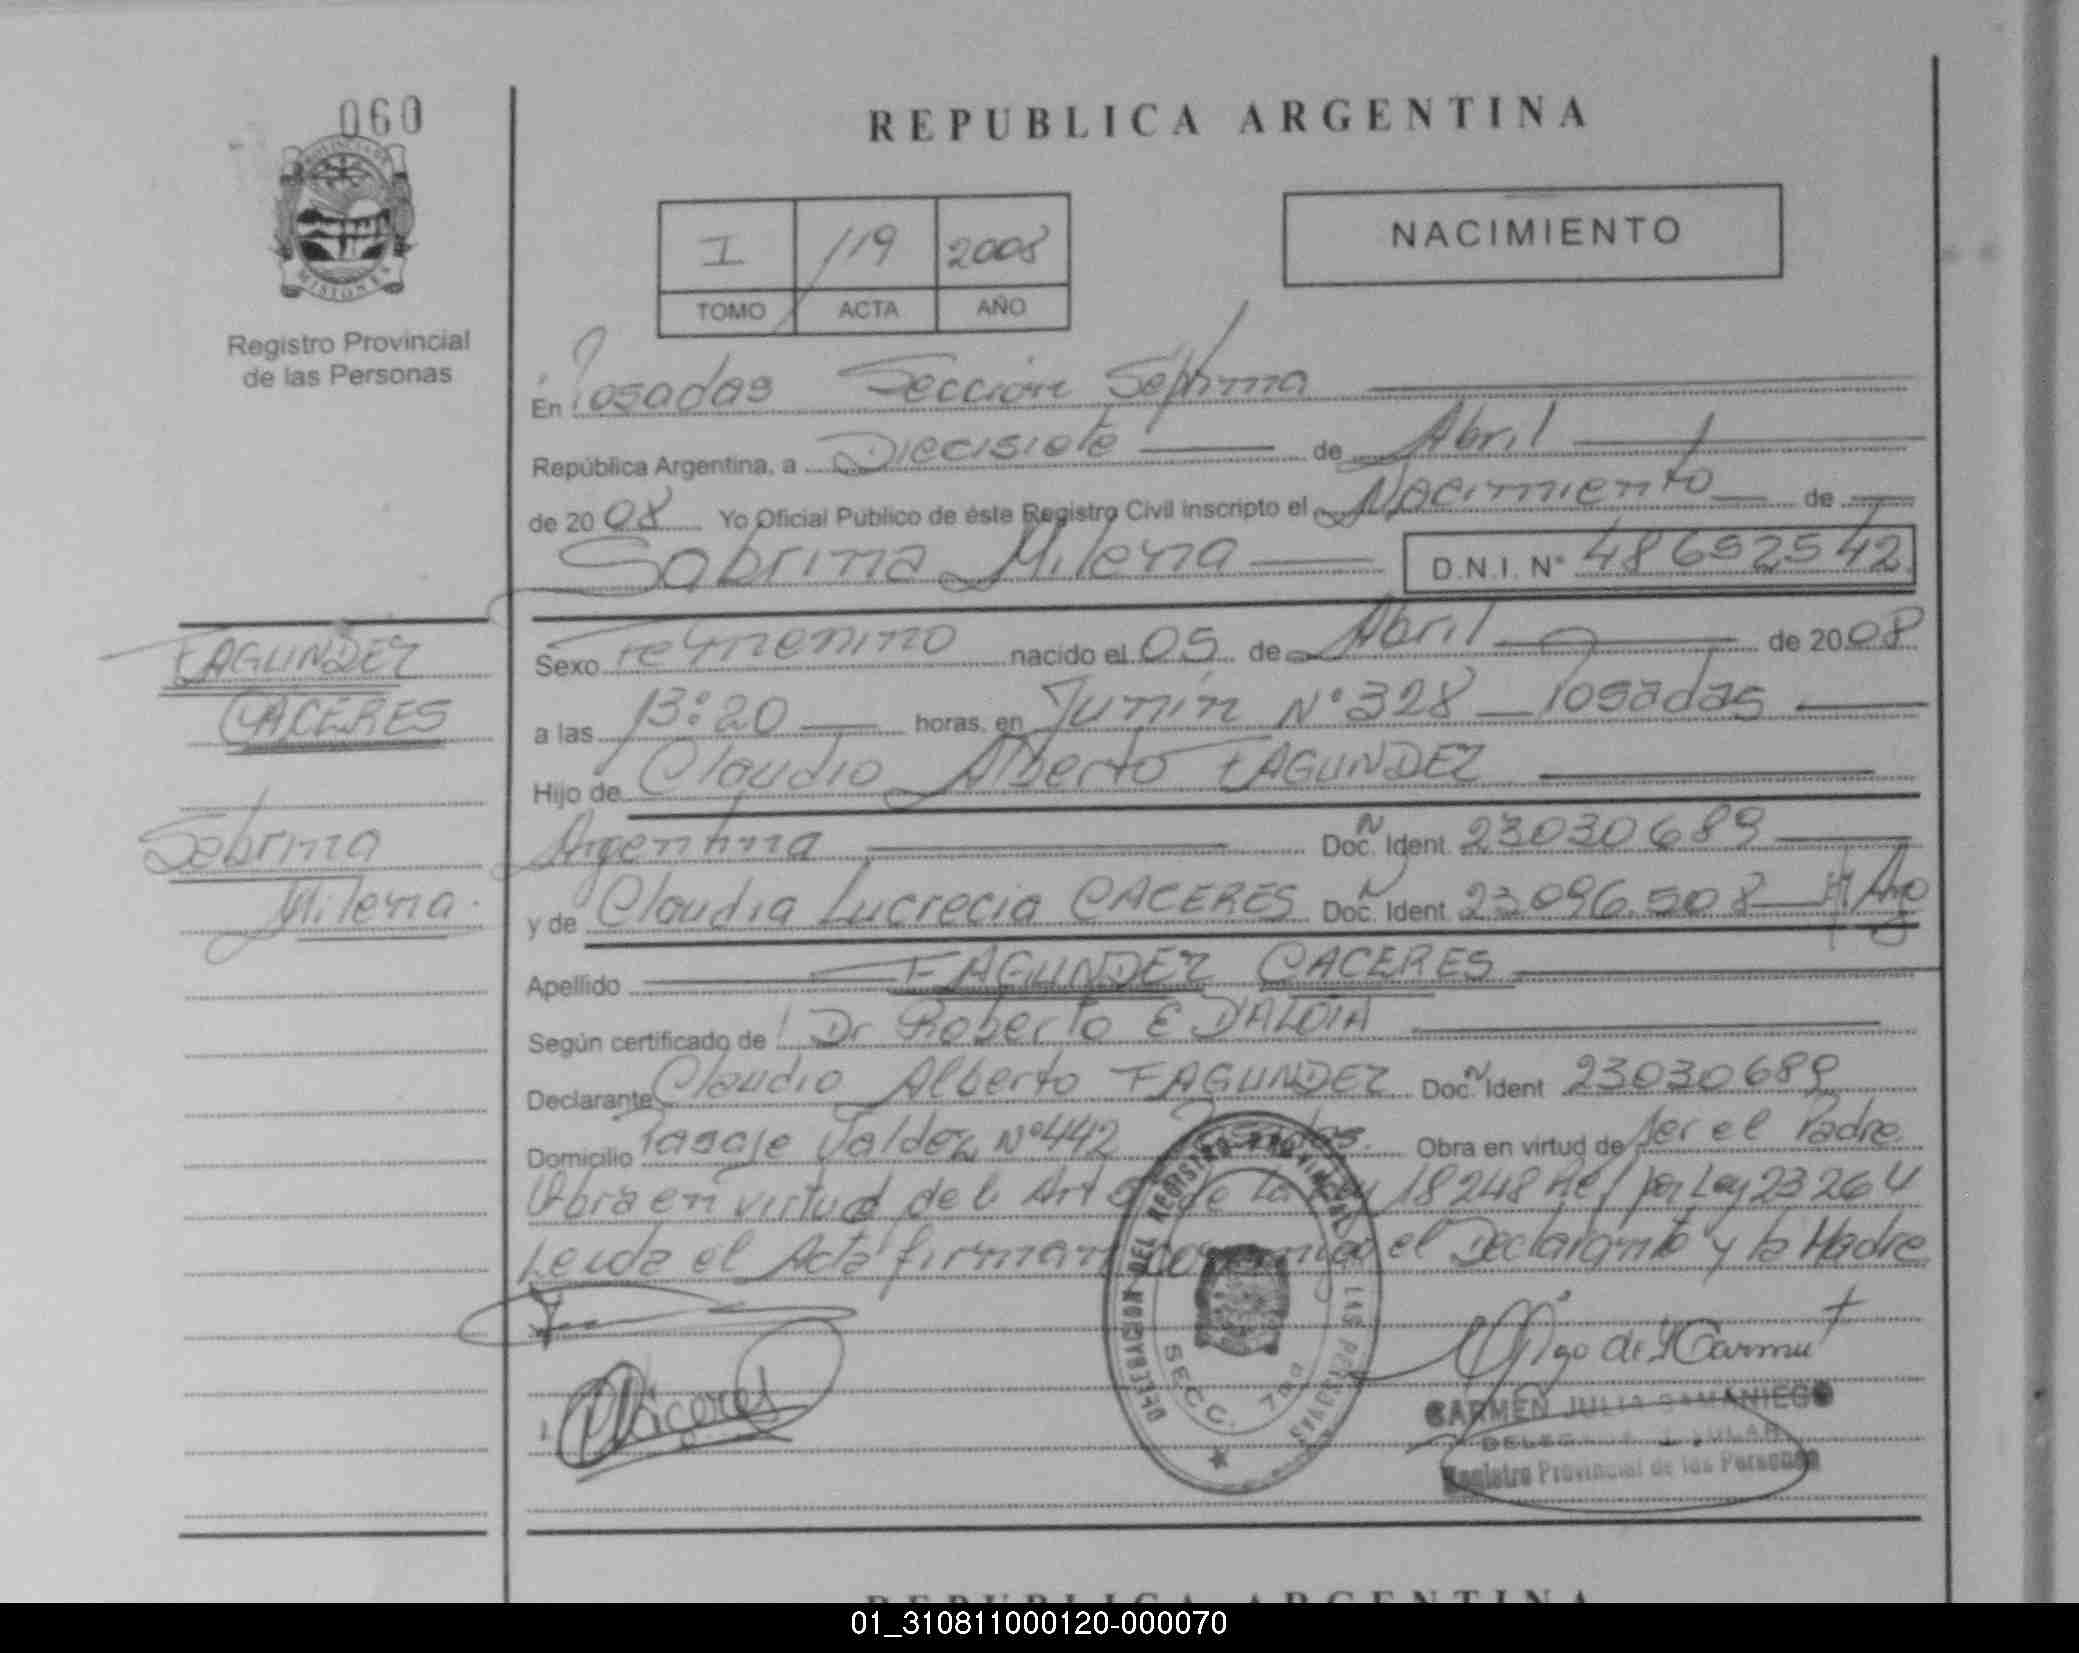 060
REPUBLICA ARGENTINA
I 119 2008
TOMO ACTA AÑO
NACIMIENTO
MISIONES
Registro Provincial
de las Personas
En Posadas Sección Séptima
República Argentina, a Diecisiete de Abril
de 2008 Yo Oficial Público de éste Registro Civil inscripto el Nacimiento de
Sabrina Milena D.N.I. Nº 48692542
FAGUNDEZ
CACERES
Sabrina
Milena.
Sexo Femenino nacido el 05 de Abril de 2008
a las 13:20 horas, en Junín Nº 328 Posadas
Hijo de Claudio Alberto FAGUNDEZ
Argentina Doc. N Ident. 23030689
y de Claudia Lucrecia CACERES Doc. N Ident. 23.096.508 Arg
Apellido FAGUNDEZ CACERES
Según certificado de Dr Roberto E D'ALOIA
Declarante Claudio Alberto FAGUNDEZ Doc. N Ident 23030689
Domicilio Pasaje Valdez Nº 442 Posadas. Obra en virtud de ser el Padre
Obra en virtud del Art de la Ley 18248 Ref por Ley 23264
Leída el Acta firman conmigo el Declarante y la Madre
CCáceres
DELEGACION DEL REGISTRO PROVINCIAL DE LAS PERSONAS
SECC. 7ma
CARMEN JULIA SAMANIEGO
DELEGADA TITULAR
Registro Provincial de las Personas
REPUBLICA ARGENTINA
01_310811000120-000070